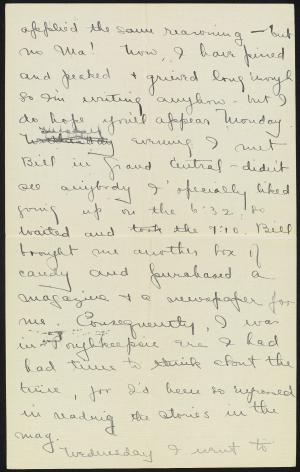 applied the same reasoning — but
no Ma! Now, I have pined
and peaked & grieved long enough
so I'm writing anyhow - but I
do hope you'll appear Monday.
Tuesday
evening I met
Bill in Grand Central - didn't
see anybody I specially liked
going up on the 6:32 so
waited and took the 7:10. Bill
brought me another box of
candy and purchased a
magazine & a newspaper for
me. Consequently, I was
in Poughkeepsie ere I had
had time to think about the
time, for I'd been so engrossed
in reading the stories in the
mag.
Wednesday I went to